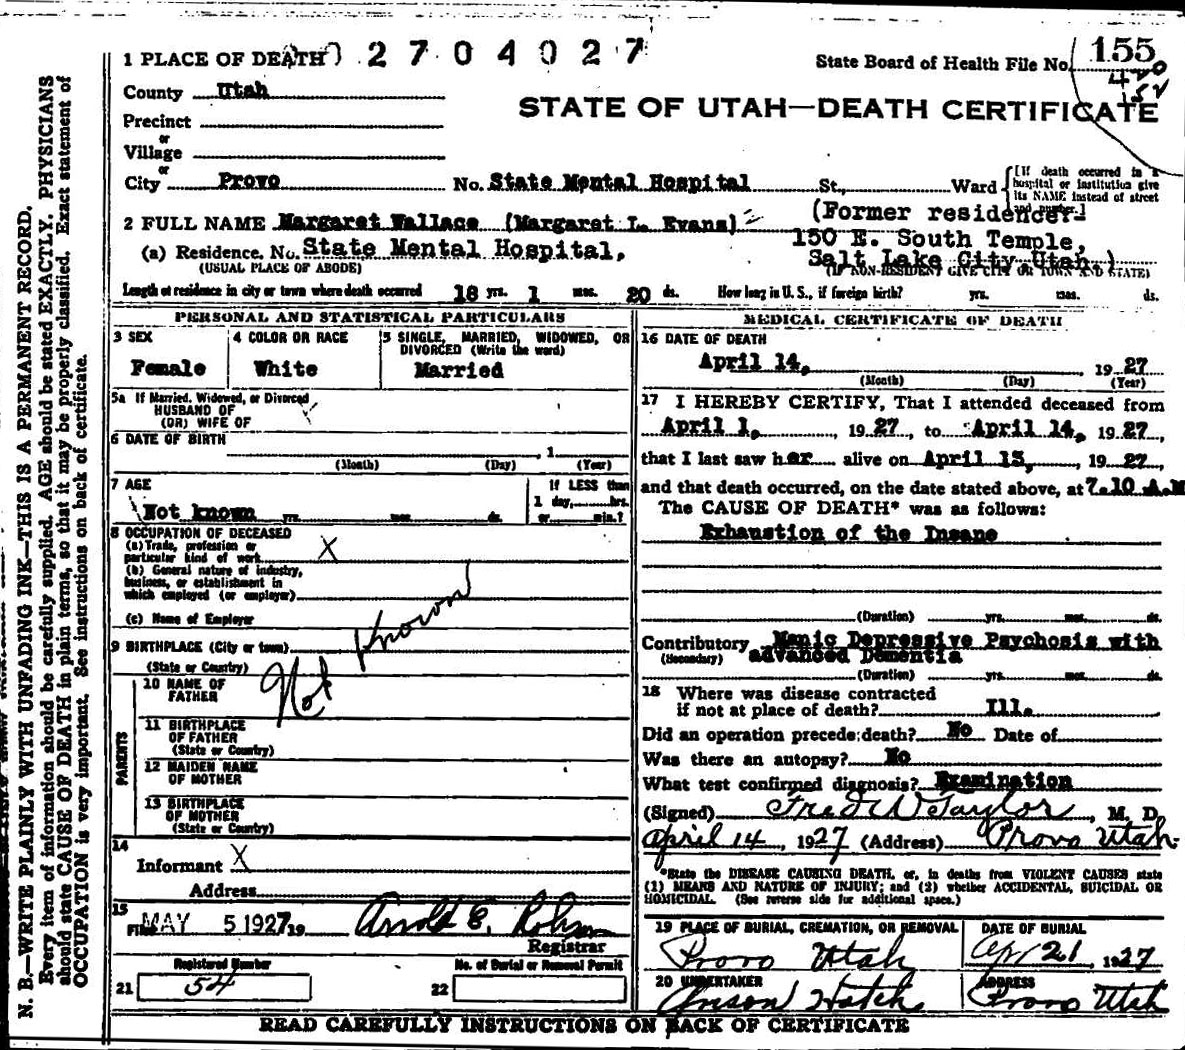 1 PLACE OF DEATH
02704027
State Board of Health File No. 155
County Utah
STATE OF UTAH—DEATH CERTIFICATE
Precinct
or
Village
or
City Provo No. State Mental Hospital St., Ward
[If death occurred in a
hospital or institution give
its NAME instead of street
and number.]
2 FULL NAME Margaret Wallace (Margaret L. Evans)
(Former residence-
150 E. South Temple,
Salt Lake City Utah.)
(a) Residence. No. State Mental Hospital,
(USUAL PLACE OF ABODE)
(IF NON-RESIDENT GIVE CITY OR TOWN AND STATE)
Length of residence in city or town where death occurred 18 yrs. 1 mos. 20 ds. How long in U. S., if foreign birth? yrs. mos. ds.
PERSONAL AND STATISTICAL PARTICULARS
3 SEX
Female
4 COLOR OR RACE
White
5 SINGLE, MARRIED, WIDOWED, OR
DIVORCED (Write the word)
Married
5a If Married, Widowed, or Divorced
HUSBAND OF
(OR) WIFE OF
6 DATE OF BIRTH
, 1
(Month) (Day) (Year)
7 AGE
Not known yrs. mos. ds.
If LESS than
1 day, hrs.
or min.?
8 OCCUPATION OF DECEASED
(a) Trade, profession or
particular kind of work X
(b) General nature of industry,
business, or establishment in
which employed (or employer)
(c) Name of Employer
9 BIRTHPLACE (City or town)
(State or Country)
Not Known
PARENTS
10 NAME OF
FATHER
11 BIRTHPLACE
OF FATHER
(State or Country)
12 MAIDEN NAME
OF MOTHER
13 BIRTHPLACE
OF MOTHER
(State or Country)
14
Informant X
Address
15
Filed MAY 5 1927 19
Arnold E.
Registrar
Registered Number
21 54
No. of Burial or Removal Permit
22
MEDICAL CERTIFICATE OF DEATH
16 DATE OF DEATH
April 14, 1927
(Month) (Day) (Year)
17 I HEREBY CERTIFY, That I attended deceased from
April 1, 1927, to April 14, 1927,
that I last saw her alive on April 13, 1927,
and that death occurred, on the date stated above, at 7.10 A.M
The CAUSE OF DEATH* was as follows:
Exhaustion of the Insane
(Duration) yrs. mos. ds.
Contributory Manic Depressive Psychosis with
(Secondary) advanced Dementia
(Duration) yrs. mos. ds.
18 Where was disease contracted
if not at place of death? Ill.
Did an operation precede death? No Date of
Was there an autopsy? No
What test confirmed diagnosis? Examination
(Signed) Fred W Taylor, M. D.
April 14, 1927 (Address) Provo Utah.
*State the DISEASE CAUSING DEATH, or, in deaths from VIOLENT CAUSES state
(1) MEANS AND NATURE OF INJURY; and (2) whether ACCIDENTAL, SUICIDAL OR
HOMICIDAL. (See reverse side for additional space.)
19 PLACE OF BURIAL, CREMATION, OR REMOVAL
Provo Utah
DATE OF BURIAL
Apr 21, 1927
20 UNDERTAKER
Anson Hatch
ADDRESS
Provo Utah
READ CAREFULLY INSTRUCTIONS ON BACK OF CERTIFICATE
N. B.—WRITE PLAINLY WITH UNFADING INK—THIS IS A PERMANENT RECORD.
Every item of information should be carefully supplied. AGE should be stated EXACTLY. PHYSICIANS
should state CAUSE OF DEATH in plain terms, so that it may be properly classified. Exact statement of
OCCUPATION is very important. See instructions on back of certificate.